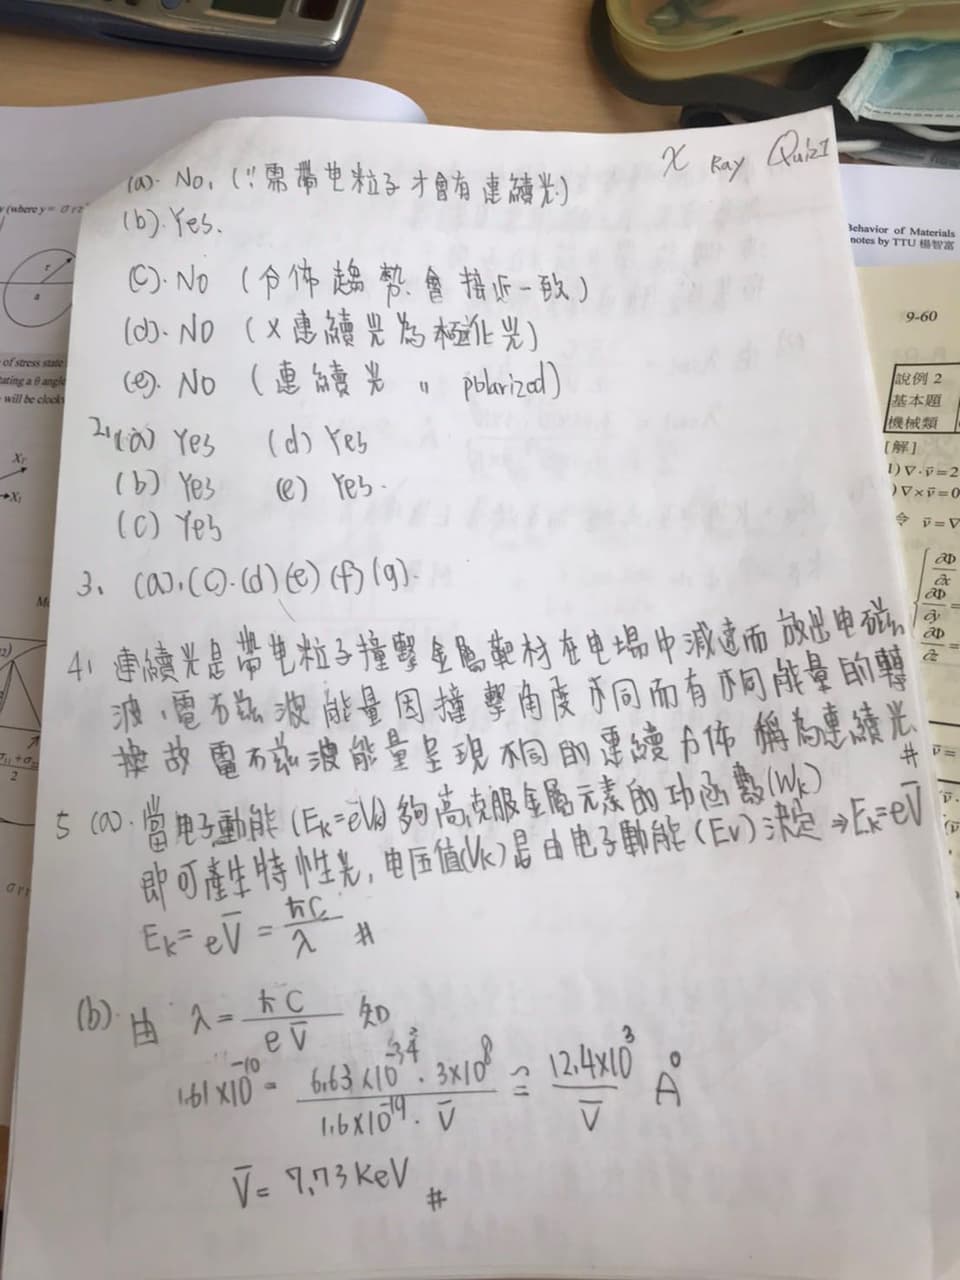 X Ray Quiz1
(a). No. (∵需帶电粒子才會有連續光)
(b). Yes.
(c). No (分佈趨勢會接近一致)
(d). No (X連續光為極化光)
(e). No (連續光 〃 polarized)
2. (a) Yes (d) Yes
(b) Yes (e) Yes.
(c) Yes
3. (a). (c). (d) (e) (f) (g).
4. 連續光是帶电粒子撞擊金屬靶材在电場中減速而放出电磁
波,電磁波能量因撞擊角度不同而有不同能量的轉
換故電磁波能量呈現不同的連續分佈 稱為連續光 #
5 (a). 當电子動能(Ek=eVk)夠高克服金屬元素的功函數(Wk)
即可產生特性光,电压值(Vk)是由电子動能(Ev)決定 ⇒Ek=eV̄
Ek= eV̄ = ħC/λ #
(b). 由 λ= ħC/eV̄ 知
1.61×10⁻¹⁰= 6.63×10⁻³⁴·3×10⁸/1.6×10⁻¹⁹·V̄ ≅ 12.4×10³/V̄ Å
V̄= 7.73 KeV #
y (where y =
r
a
of stress state
tating a θ angle
will be clockw
X₁
2
Behavior of Materials
notes by TTU 楊智富
9-60
說例 2
基本題
機械類
[解]
1) ∇·v̄=2
) ∇×v̄=0
令 v̄=∇
∂Φ/∂x
∂Φ/∂y
∂Φ/∂z